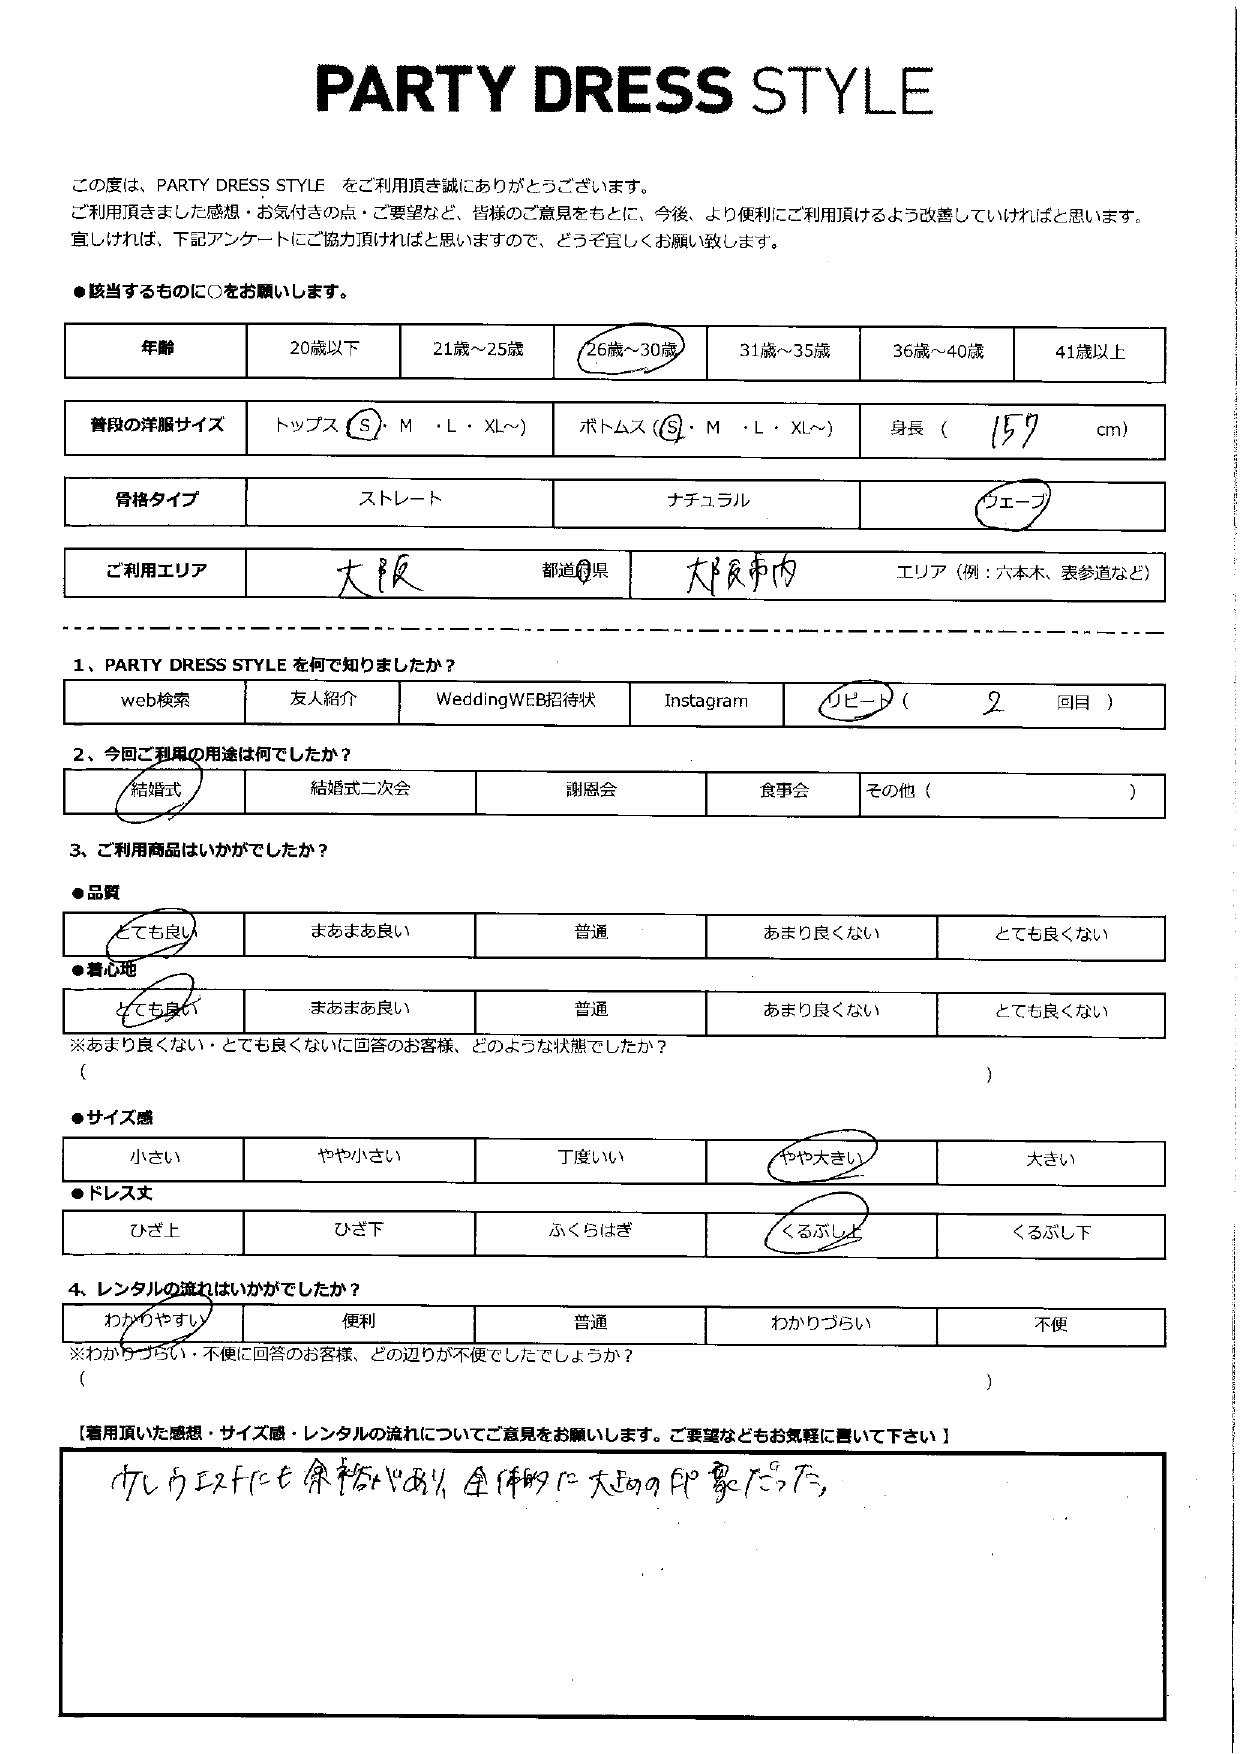 PARTY DRESS STYLE
この度は、PARTY DRESS STYLE をご利用頂き誠にありがとうございます。
ご利用頂きました感想・お気付きの点・ご要望など、皆様のご意見をもとに、今後、より便利にご利用頂けるよう改善していければと思います。
宜しければ、下記アンケートにご協力頂ければと思いますので、どうぞ宜しくお願い致します。
●該当するものに○をお願いします。
年齢 20歳以下 21歳～25歳 26歳～30歳 31歳～35歳 36歳～40歳 41歳以上
普段の洋服サイズ トップス (S・ M ・L ・ XL～) ボトムス (S・ M ・L ・ XL～) 身長 ( 157 cm)
骨格タイプ ストレート ナチュラル ウェーブ
ご利用エリア 大阪 都道府県 大阪市内 エリア（例：六本木、表参道など）
1、PARTY DRESS STYLE を何で知りましたか？
web検索 友人紹介 WeddingWEB招待状 Instagram リピート ( 2 回目 )
2、今回ご利用の用途は何でしたか？
結婚式 結婚式二次会 謝恩会 食事会 その他 ( )
3、ご利用商品はいかがでしたか？
●品質
とても良い まあまあ良い 普通 あまり良くない とても良くない
●着心地
とても良い まあまあ良い 普通 あまり良くない とても良くない
※あまり良くない・とても良くないに回答のお客様、どのような状態でしたか？
( )
●サイズ感
小さい やや小さい 丁度いい やや大きい 大きい
●ドレス丈
ひざ上 ひざ下 ふくらはぎ くるぶし上 くるぶし下
4、レンタルの流れはいかがでしたか？
わかりやすい 便利 普通 わかりづらい 不便
※わかりづらい・不便に回答のお客様、どの辺りが不便でしたでしょうか？
( )
【着用頂いた感想・サイズ感・レンタルの流れについてご意見をお願いします。ご要望などもお気軽に書いて下さい 】
少しウエストにも余裕があり、全体的に大きめの印象だった。